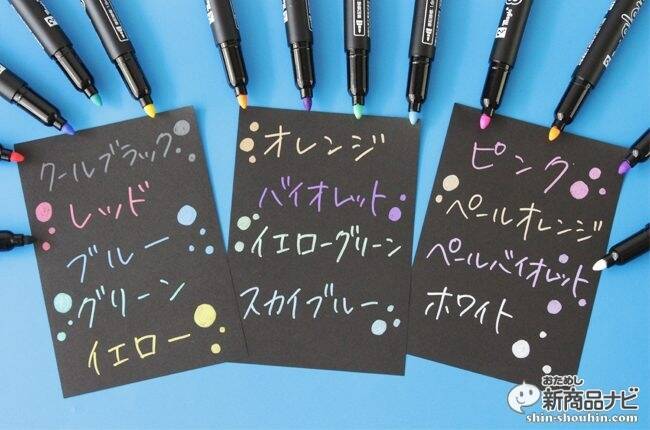 クールブラック
レッド
ブルー
グリーン
イエロー
オレンジ
バイオレット
イエローグリーン
スカイブルー
ピンク
ペールオレンジ
ペールバイオレット
ホワイト
おためし
新商品ナビ
shin-shouhin.com